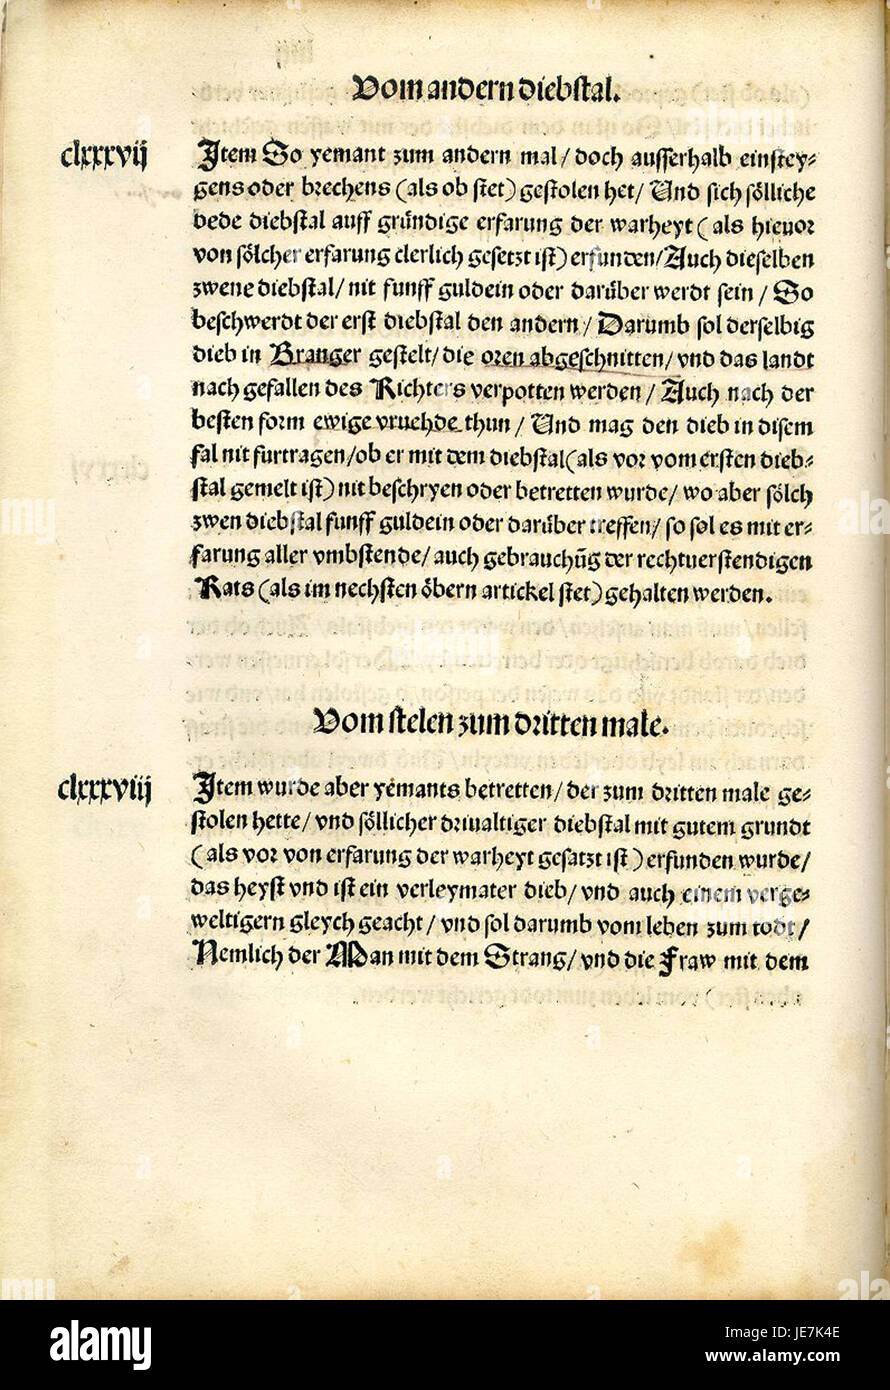 Vom andern diebstal.
clxxxvij
Item So yemant zum andern mal/ doch ausserhalb einstey-
gens oder brechens (als ob stet) gestolen het/ Und sich söllich̄e
bede diebstal auff gründige erfarung der warheyt (als hieuor
von sölcher erfarung clerlich gesetzt ist) erfunden/ Auch dieselben
zwene diebstal/ nit funff guldein oder darüber werdt sein/ So
beschwerdt der erst diebstal den andern/ Darumb sol derselbig
dieb in Branger gestelt/ die oren abgeschnitten/ vnd das landt
nach gefallen des Richters verpotten werden/ Auch nach der
besten form ewige vruehde thun/ Und mag den dieb in disem
fal nit furtragen/ ob er mit dem diebstal (als vor vom ersten dieb-
stal gemelt ist) nit beschryen oder betretten wurde/ wo aber sölch
zwen diebstal funff guldein oder darüber treffen/ so sol es mit er-
farung aller vmbstende/ auch gebrauchūg der rechtuerstendigen
Rats (als im nechsten öbern artickel stet) gehalten werden.
Vom stelen zum dritten male.
clxxxviij
Item wurde aber yemants betretten/ der zum dritten male ge-
stolen hette/ vnd söllicher driualtiger diebstal mit gutem grundt
(als vor von erfarung der warheyt gesatzt ist) erfunden wurde/
das heyst vnd ist ein verleymater dieb/ vnd auch einem verge-
weltigern gleych geacht/ vnd sol darumb vom leben zum todt/
Nemlich der Man mit dem Strang/ vnd die Fraw mit dem
alamy
Image ID: JE7K4E
www.alamy.com